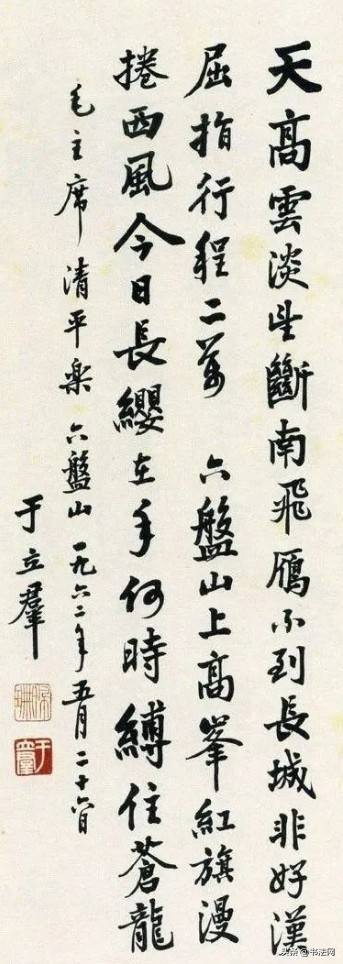 天高雲淡望斷南飛鴈不到長城非好漢
屈指行程二萬 六盤山上高峯紅旗漫
捲西風今日長纓在手何時縛住蒼龍
毛主席清平楽六盤山 一九六二年五月二十六日
于立羣
于立羣
头条 @书法网